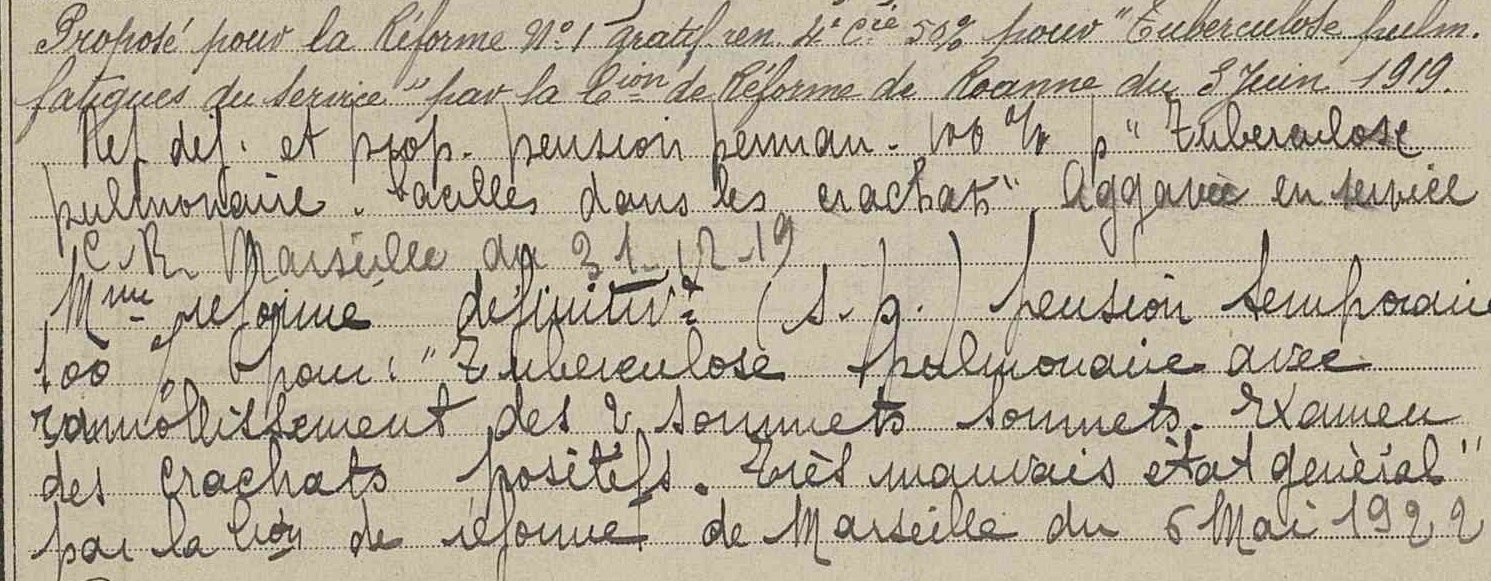 Proposé pour la Réforme N°1 gratif. ren. 4e Cie 50% pour "Tuberculose pulm.
fatigues du service" par la Cion de Réforme de Roanne du 3 Juin 1919.
Ref. def. et prop. pension perman. 100 % p "Tuberculose
pulmonaire. bacilles dans les crachats" Aggavée en service
C.R. Marseille du 31-12-19
Mnu réformé définitivt (s.p.) pension temporaire
100 % pour : "Tuberculose pulmonaire avec
ramollissement des 2 sommets sommets. Examen
des crachats positifs. Très mauvais état général"
par la Cion de réforme de Marseille du 5 Mai 1922